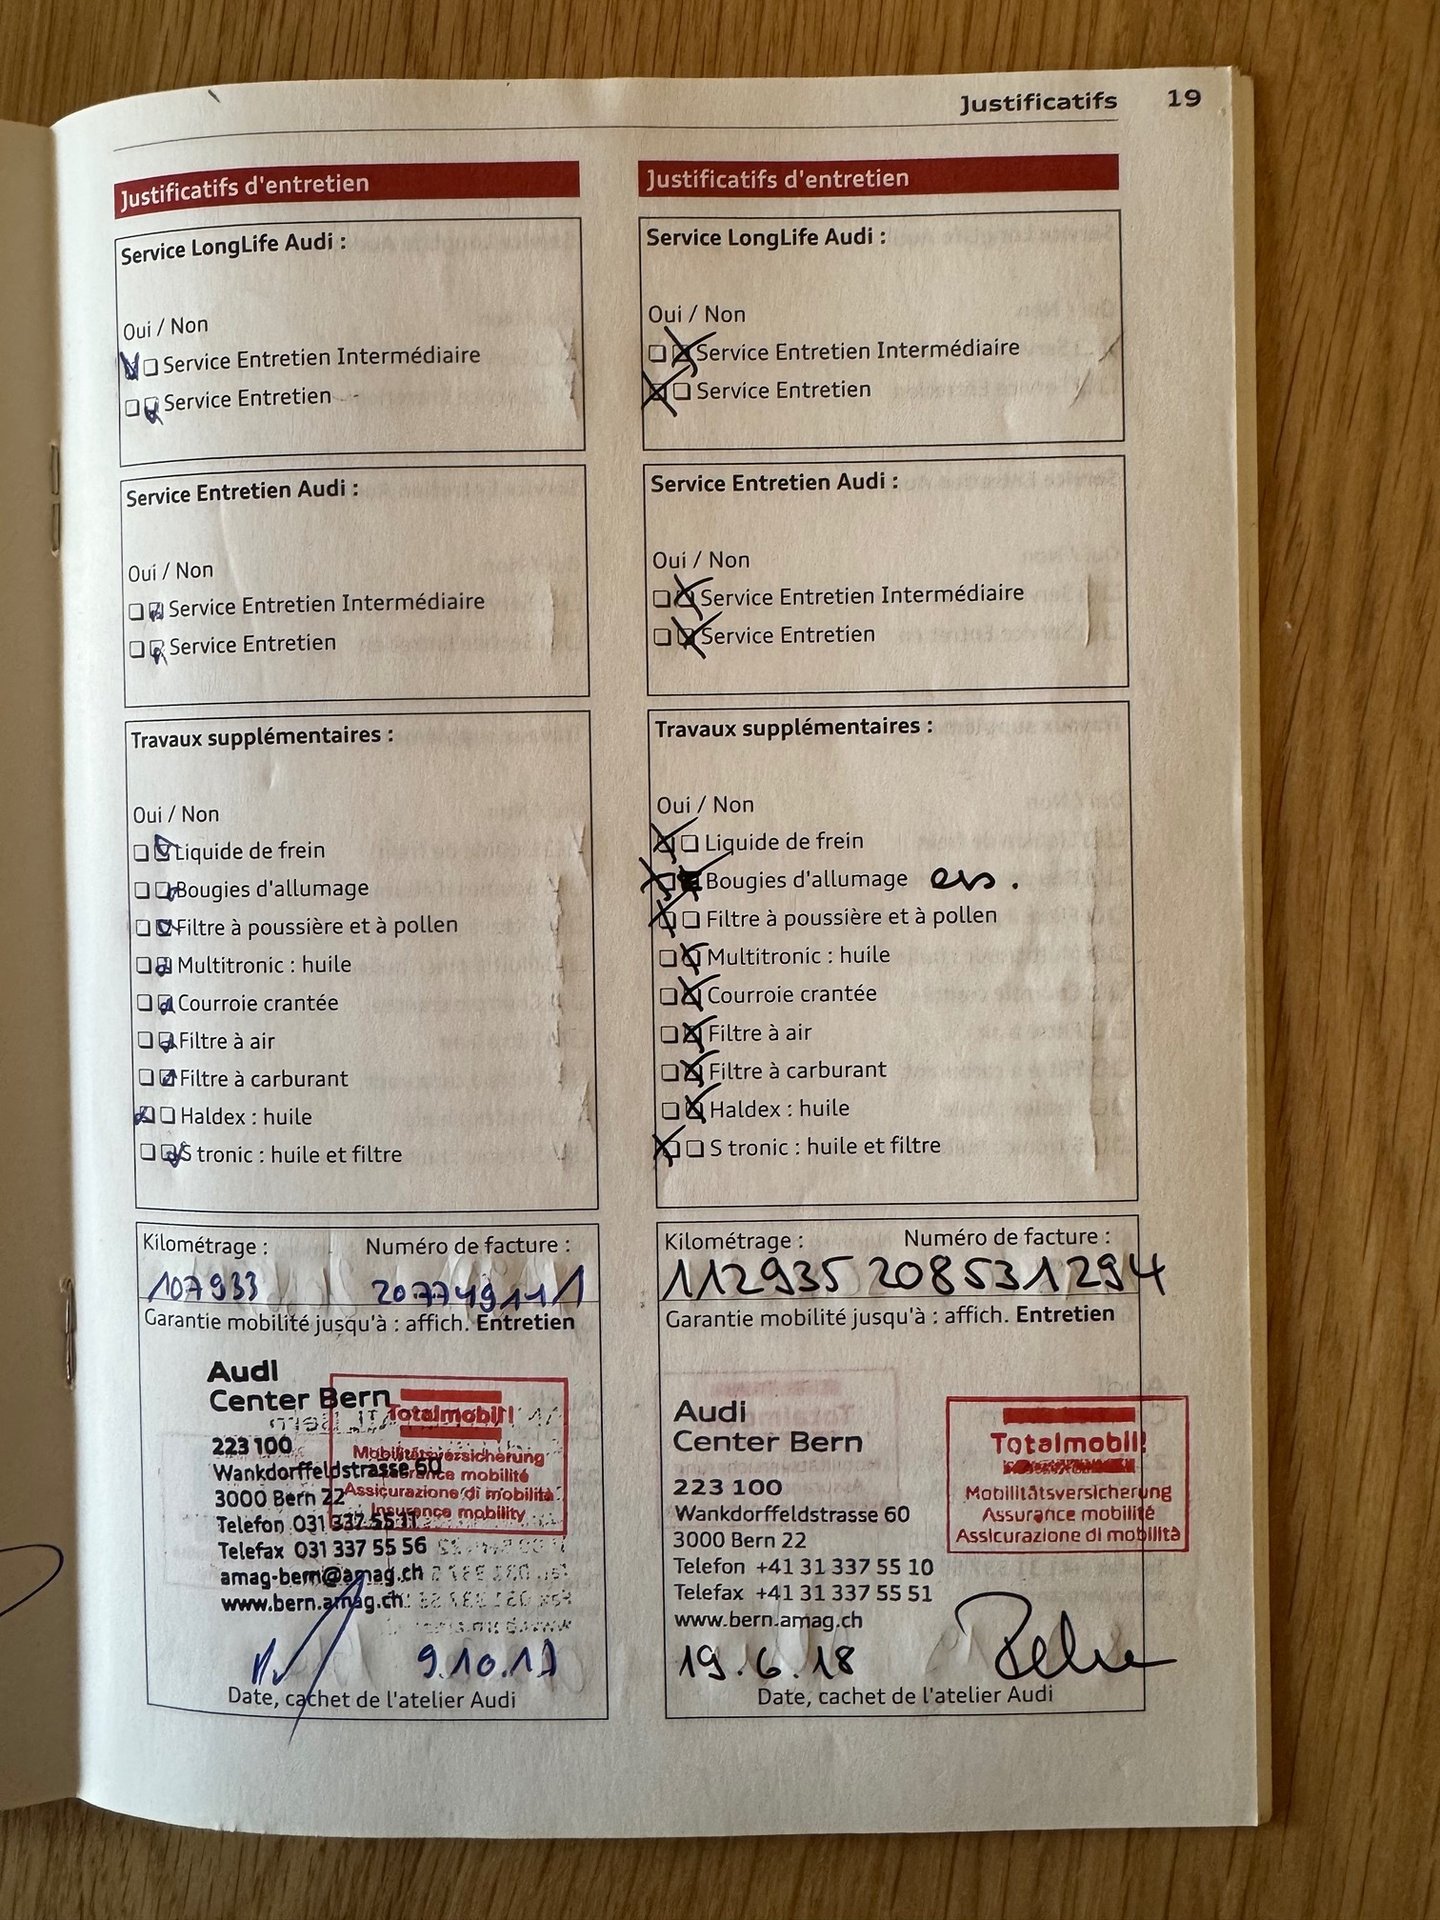 Justificatifs 19
Justificatifs d'entretien
Service LongLife Audi :
Oui / Non
Service Entretien Intermédiaire
Service Entretien
Service Entretien Audi :
Oui / Non
Service Entretien Intermédiaire
Service Entretien
Travaux supplémentaires :
Oui / Non
Liquide de frein
Bougies d'allumage
Filtre à poussière et à pollen
Multitronic : huile
Courroie crantée
Filtre à air
Filtre à carburant
Haldex : huile
S tronic : huile et filtre
Kilométrage : Numéro de facture :
107933 207749111
Garantie mobilité jusqu'à : affich. Entretien
Audi
Center Bern
223 100
Wankdorffeldstrasse 60
3000 Bern 22
Telefon 031 337 55 11
Telefax 031 337 55 56
amag-bern@amag.ch
www.bern.amag.ch
Totalmobil!
Mobilitätsversicherung
Assurance mobilité
Assicurazione di mobilità
Insurance mobility
9.10.17
Date, cachet de l'atelier Audi
Justificatifs d'entretien
Service LongLife Audi :
Oui / Non
Service Entretien Intermédiaire
Service Entretien
Service Entretien Audi :
Oui / Non
Service Entretien Intermédiaire
Service Entretien
Travaux supplémentaires :
Oui / Non
Liquide de frein
Bougies d'allumage ers.
Filtre à poussière et à pollen
Multitronic : huile
Courroie crantée
Filtre à air
Filtre à carburant
Haldex : huile
S tronic : huile et filtre
Kilométrage : Numéro de facture :
112935 2085531294
Garantie mobilité jusqu'à : affich. Entretien
Audi
Center Bern
223 100
Wankdorffeldstrasse 60
3000 Bern 22
Telefon +41 31 337 55 10
Telefax +41 31 337 55 51
www.bern.amag.ch
Totalmobil!
Mobilitätsversicherung
Assurance mobilité
Assicurazione di mobilità
19.6.18
Date, cachet de l'atelier Audi